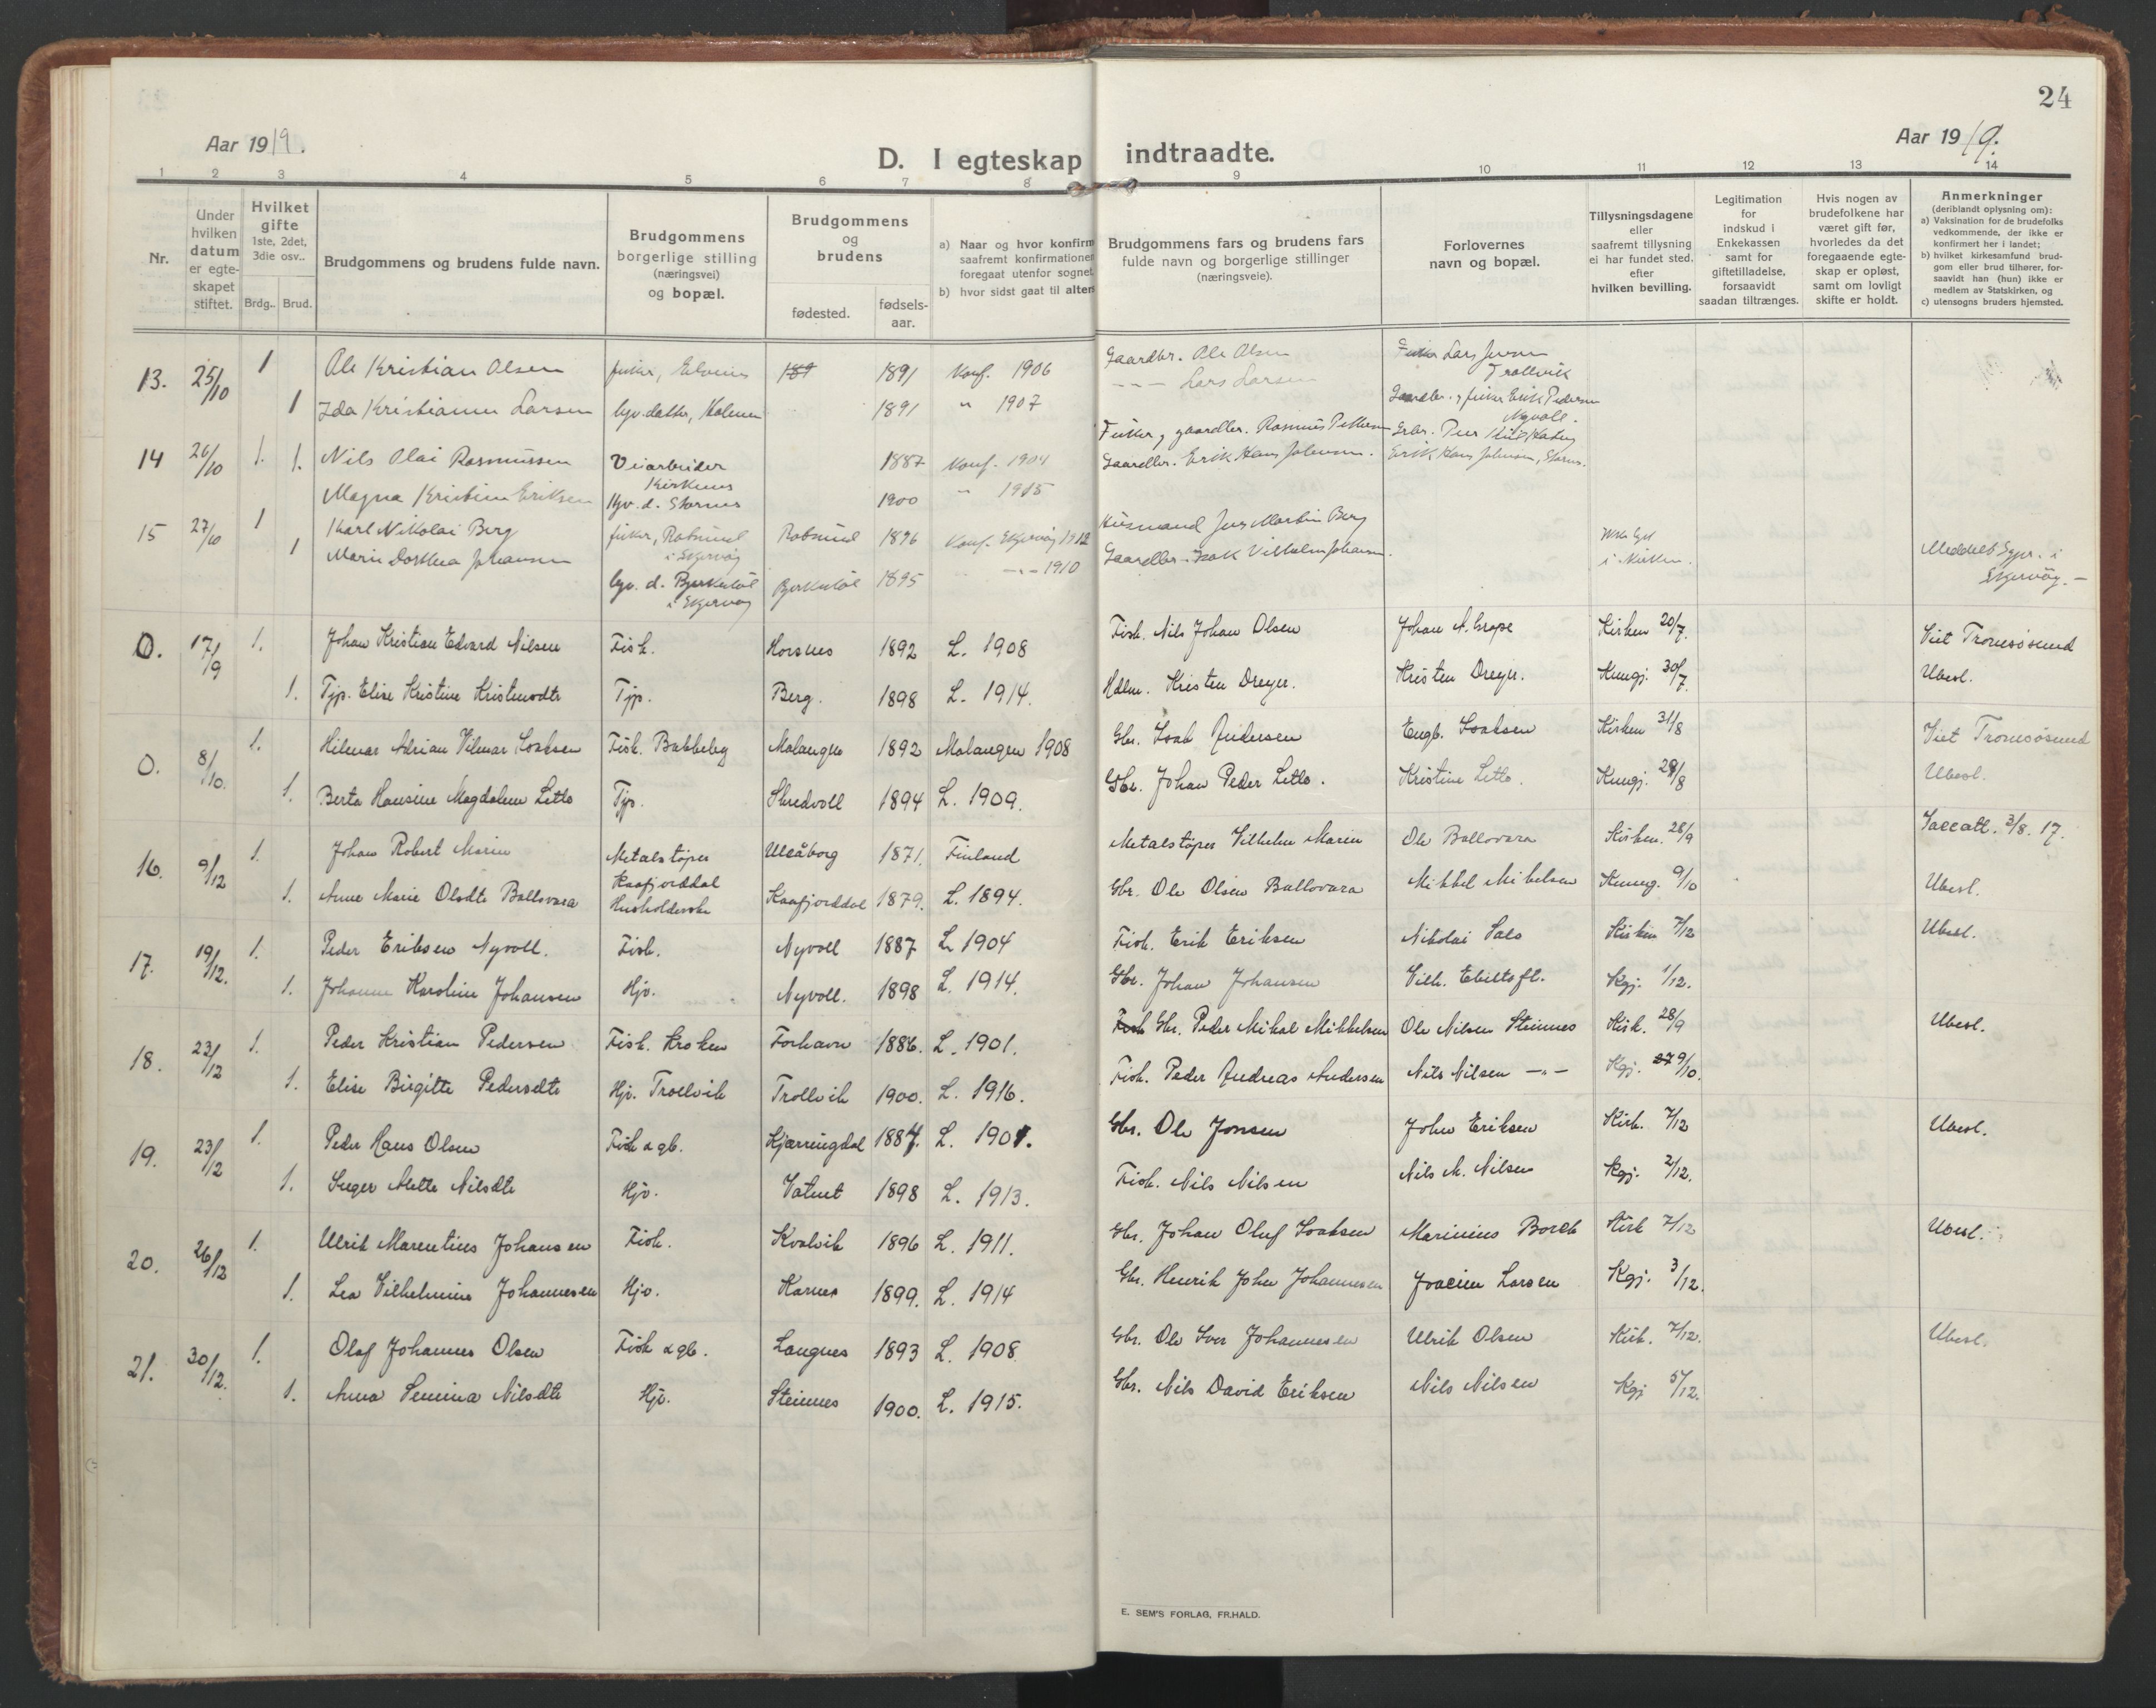 24
Aar 1919.
Aar 1919.
D. I egteskap indtraadte.
1 2 3 4 5 6 7 8 9 10 11 12 13 14
Nr.
Under hvilken datum er egte-skapet stiftet.
Hvilket gifte
1ste, 2det, 3die osv..
Brdg.. Brud.
Brudgommens og brudens fulde navn.
Brudgommens borgerlige stilling (næringsvei) og bopæl.
Brudgommens og brudens
fødested.
fødsels-aar.
a) Naar og hvor konfirm
saafremt konfirmationen
foregaat utenfor sognet
b) hvor sidst gaat til alters
Brudgommens fars og brudens fars
fulde navn og borgerlige stillinger
(næringsveie).
Forlovernes
navn og bopæl.
Tillysningsdagene
eller
saafremt tillysning
ei har fundet sted.
efter
hvilken bevilling.
Legitimation
for
indskud i
Enkekassen
samt for
giftetilladelse,
forsaavidt
saadan tiltrænges.
Hvis nogen av
brudefolkene har
været gift før,
hvorledes da det
foregaaende egte-
skap er opløst,
samt om lovligt
skifte er holdt.
Anmerkninger
(deriblandt oplysning om):
a) Vaksination for de brudefolks
vedkommende, der ikke er
konfirmert her i landet;
b) hvilket kirkesamfund brud-
gom eller brud tilhører, for-
saavidt han (hun) ikke er
medlem av Statskirken, og
c) utensogns bruders hjemsted.
13. 25/10 1 Ole Kristian Olsen fisker, 1891 Konf. 1906 Gaardbr. Ole Olsen Fisker Lars Jensen
Trollvik
1 Ida Kristianne Larsen hjv. datter, Holmen 1891 " 1907 - - - Lars Larsen Gaardbr. , fisker Erik Pedersen
Nyvoll.
14 26/10 1. 1. Nils Olai Rasmussen Veiarbeider
Kirkenes 1887 Konf. 1904 Fisker, gaardbr. Rasmus Pettersen
Magna Kristine Eriksen Hjv. d. 1900 " 1915 Gaardbr. Erik Hans Johansen. Erik Hans Johansen,
15 27/10 1 Karl Nikolai Berg fisker, Rotsund
i Skjervøy Rotsund 1896 Konf. Skjervøy 1912 Husmand Jens Martin Berg
1 Marie Dorthea Johansen hjv. d.
i Skjervøy 1895 - " - 1910 Gaardbr. Isak Vilhelm Johansen.
i Kirken.
Meddelt Sgpr. i
Skjervøy. -
O. 17/9 1. Johan Kristian Edvard Nilsen Fisk. Horsnes 1892 L. 1908 Fisk. Nils Johan Olsen Johan A. Grape Kirken 20/7. Viet Tromsøsund
1. Tjp. Elise Kristine Kristensdtr Tjp. Berg. 1898 L. 1914. Hdlm. Kristen Dreyer. Kristen Dreyer. Kungj. 30/7. Ubesl.
O. 8/10. 1. Hilmar Adrian Vilmar Isaksen Fisk. Bakkeby Malangen 1892 Malangen 1908 Gbr. Isak Andersen Engb. Isaksen Kirken 31/8 Viet Tromsøsund
1. Berta Hansine Magdalene Letto Tjp. Skredvoll 1894 L. 1909. Gbr. Johan Peder Letto. Kristine Letto. Kungj. 29/8 Ubesl.
16. 9/12 1. Johan Robert Marin Metalstøper
Kaafjorddal Uleåborg 1871. Finland Metalstøper Vilhelm Marin Ole Ballovara Kirken. 28/9 Vaccatt. 3/8. 17.
1. Anne Marie Olsdtr Ballovara Husholderske Kaafjorddal 1879. L. 1894. Gbr. Ole Olsen Ballovara Mikkel Mikelsen Kunng. 9/10 Ubesl.
17. 19/12. 1. Peder Eriksen Nyvoll. Fisk. Nyvoll 1887 L. 1904 Fisk. Erik Eriksen Nikolai Salo Kirken 7/12 Ubesl.
1. Johanne Karoline Johansen Hjv. Nyvoll. 1898 L. 1914. Gbr. Johan Johansen Vilh. Ebeltoft. Kgj. 1/12.
18. 23/12 1. Peder Kristian Pedersen Fisk. Kroken Forhavn 1886. L. 1901. Gbr. Peder Mikal Mikkelsen Ole Nilsen Steinnes Kirk. 28/9 Ubesl.
1. Elise Birgitte Pedersdtr Hjv. Trollvik Trollvik 1900. L. 1916. Fisk. Peder Andreas Andersen Nils Nilsen - " - Kgj. 9/10.
19. 23/12 1. Peder Hans Olsen Fisk & gb. Kjærringdal 1887. L. 1901. Gbr. Ole Jonsen John Eriksen Kirk. 7/12 Ubesl.
1. Inger Mette Nilsdtr Hjv. Vatnet 1898 L. 1913. Fisk. Nils Nilsen Nils M. Nilsen Kgj. 2/12.
20. 26/12 1. Ulrik Marentius Johansen Fisk. Kvalvik 1896 L. 1911. Gbr. Johan Oluf Isaksen Marinius Borch Kirk 7/12 Ubesl.
1. Lea Vilhelmine Johannesen Hjv. Karnes 1899. L. 1914 Gbr. Henrik John Johannesen Joacim Larsen Kgj. 3/12.
21. 30/12. 1. Olaf Johannes Olsen Fisk & gb. Langnes 1893 L. 1908. Gbr. Ole Iver Johannesen Ulrik Olsen Kirk. 7/12. Ubesl.
1. Anna Semina Nilsdtr Hjv. Steinnes 1900. L. 1915. Gbr. Nils David Eriksen Nils Nilsen Kgj 5/12.
E. SEM'S FORLAG, FR.HALD.